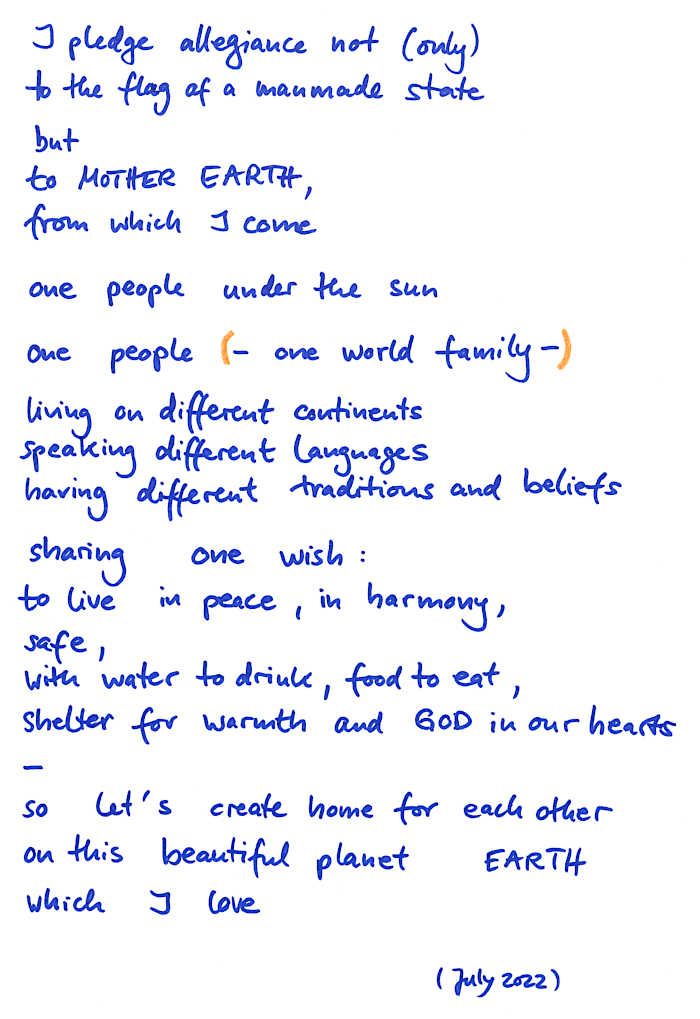 I pledge allegiance not (only)
to the flag of a manmade state
but
to MOTHER EARTH,
from which I come
one people under the sun
one people (- one world family -)
living on different continents
speaking different languages
having different traditions and beliefs
sharing one wish :
to live in peace, in harmony,
safe,
with water to drink, food to eat,
shelter for warmth and GOD in our hearts
–
so let's create home for each other
on this beautiful planet EARTH
which I love
(July 2022)